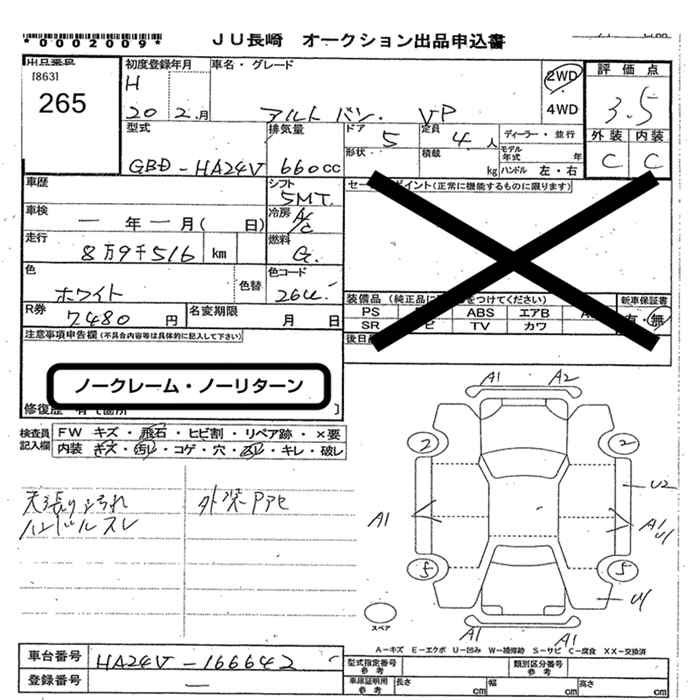 *0002009*
JU長崎 オークション出品申込書
出品番号
[863]
265
初度登録年月
H
20 2月
車名・グレード
アルト バン. VP
2WD
4WD
評価点
3.5
外装 内装
C C
型式
GBD-HA24V
排気量
660cc
ドア 5
定員 4人
形状
積載 kg
ディーラー・並行
モデル年式 年
ハンドル 左・右
車歴
シフト
5MT.
セー ポイント(正常に機能するものに限ります)
車検
一年一月( 日)
冷房
A/C
走行
8万9千516 km
燃料
G.
色
ホワイト
色替
色コード
26U.
装備品(純正品に をつけてください)
新車保証書
有・無
PS ABS エアB
SR ビ TV カワ
R券
7480円
名変期限 月 日
後日
注意事項申告欄(不具合内容等は具体的に記入して下さい)
ノークレーム・ノーリターン
修復歴 有(箇所 )
検査員記入欄
FW キズ・飛石・ヒビ割・リペア跡・×要
内装 キズ・汚レ・コゲ・穴・ ・キレ・破レ
天張り汚れ
ハンドルスレ
外装Pアセ
A1 A2
2 2
U2
A1
A1
U1
5 5
U1
A1 A1
スペア
A-キズ E-エクボ U-凹み W-補修跡 S-サビ C-腐食 XX-交換済
車台番号 HA24V-166642
登録番号 —
型式指定番号 参考
類別区分番号 参考
車庫証明用 参考
長さ cm 幅 cm 高さ cm